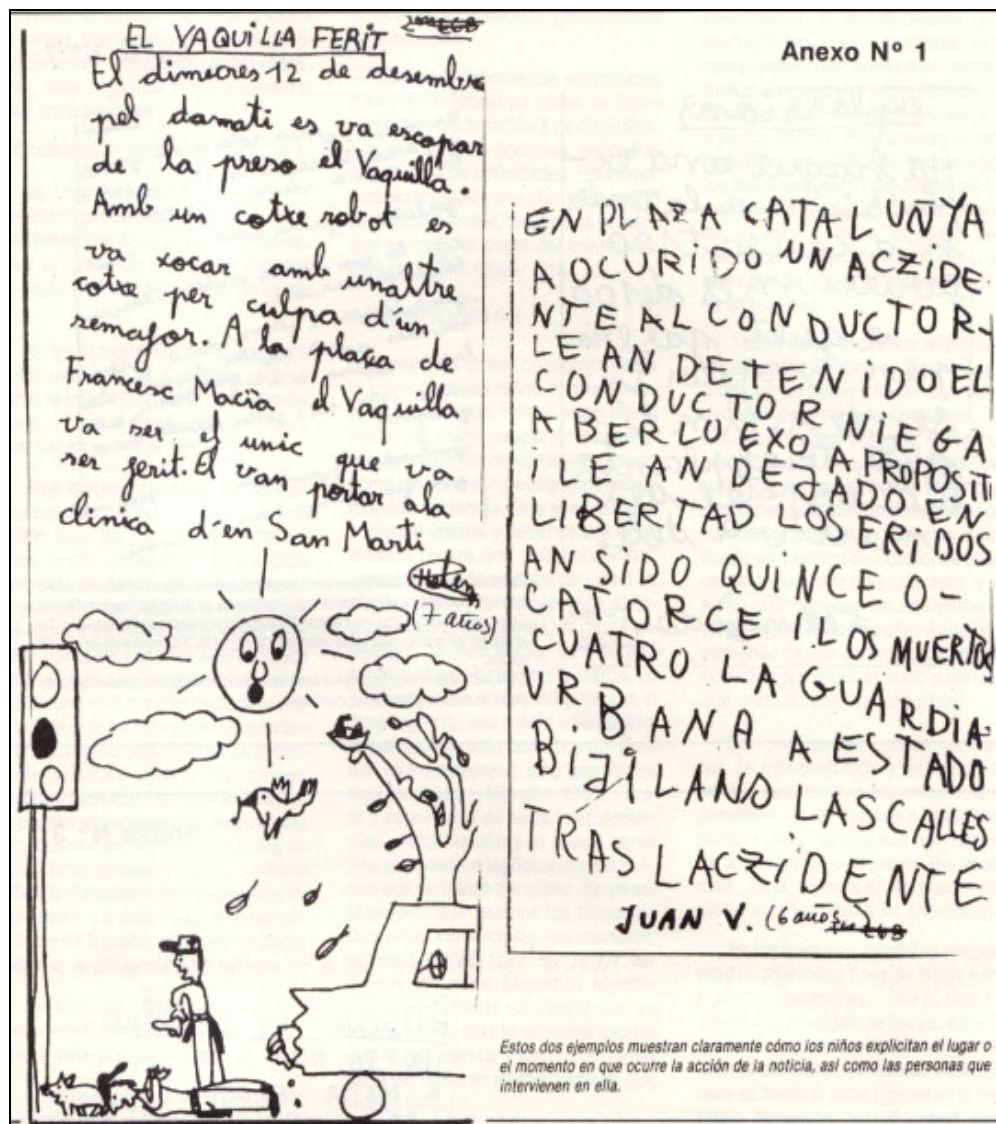 EL VAQUILLA FERIT
El dimecres 12 de desembre
pel damati es va escapar
de la preso el Vaquilla.
Amb un cotxe robat es
va xocar amb unaltre
cotxe per culpa d'un
semafor. A la plaça de
Francesc Macia el Vaquilla
va ser el unic que va
ser ferit. El van portar ala
clinica d'en San Marti
(7 años)
Anexo Nº 1
EN PLAZA CATALUÑYA
A OCURIDO UN ACZIDE
NTE AL CONDUCTOR
LE AN DETENIDO EL
CONDUCTOR NIEGA
ABERLO EXO APROPOSITI
I LE AN DEJADO EN
LIBERTAD LOS ERIDOS
AN SIDO QUINCE O-
CATORCE I LOS MUERTOS
CUATRO LA GUARDIA
URBANA A ESTADO
BIJILANDO LAS CALLES
TRAS L ACZIDENTE
JUAN V. (6 años
Estos dos ejemplos muestran claramente cómo los niños explicitan el lugar o
el momento en que ocurre la acción de la noticia, así como las personas que
intervienen en ella.